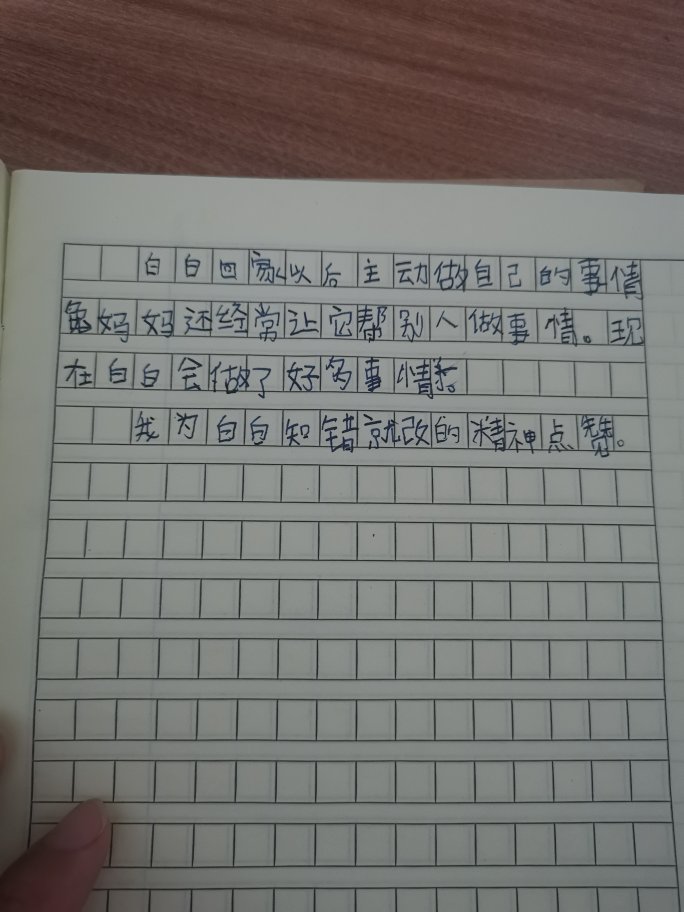 白白回家以后主动做自己的事情
龟妈妈还经常让它帮别人做事情。现
在白白会做了好多事情。
我为白白知错就改的精神点赞。